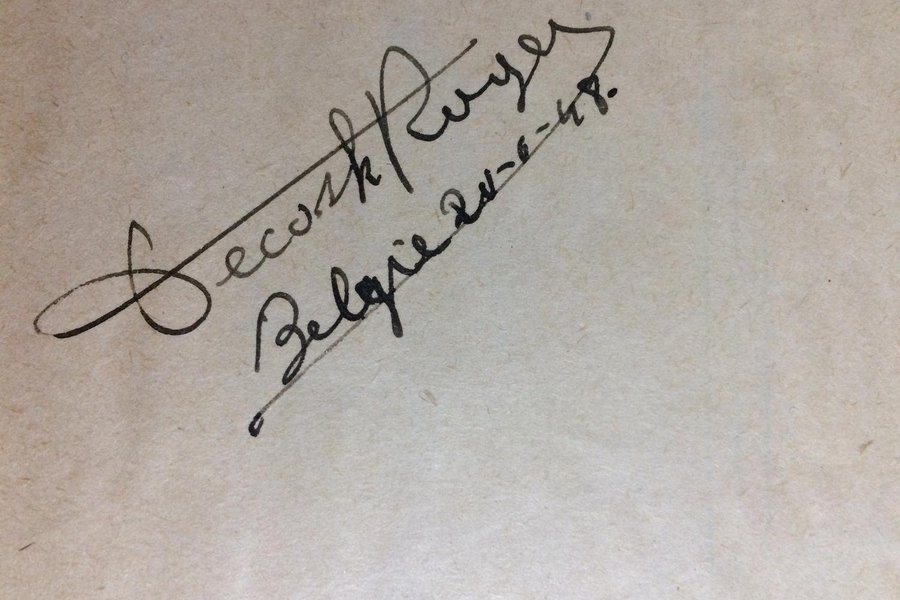 Decosk Roger
Belgie 20-6-48.